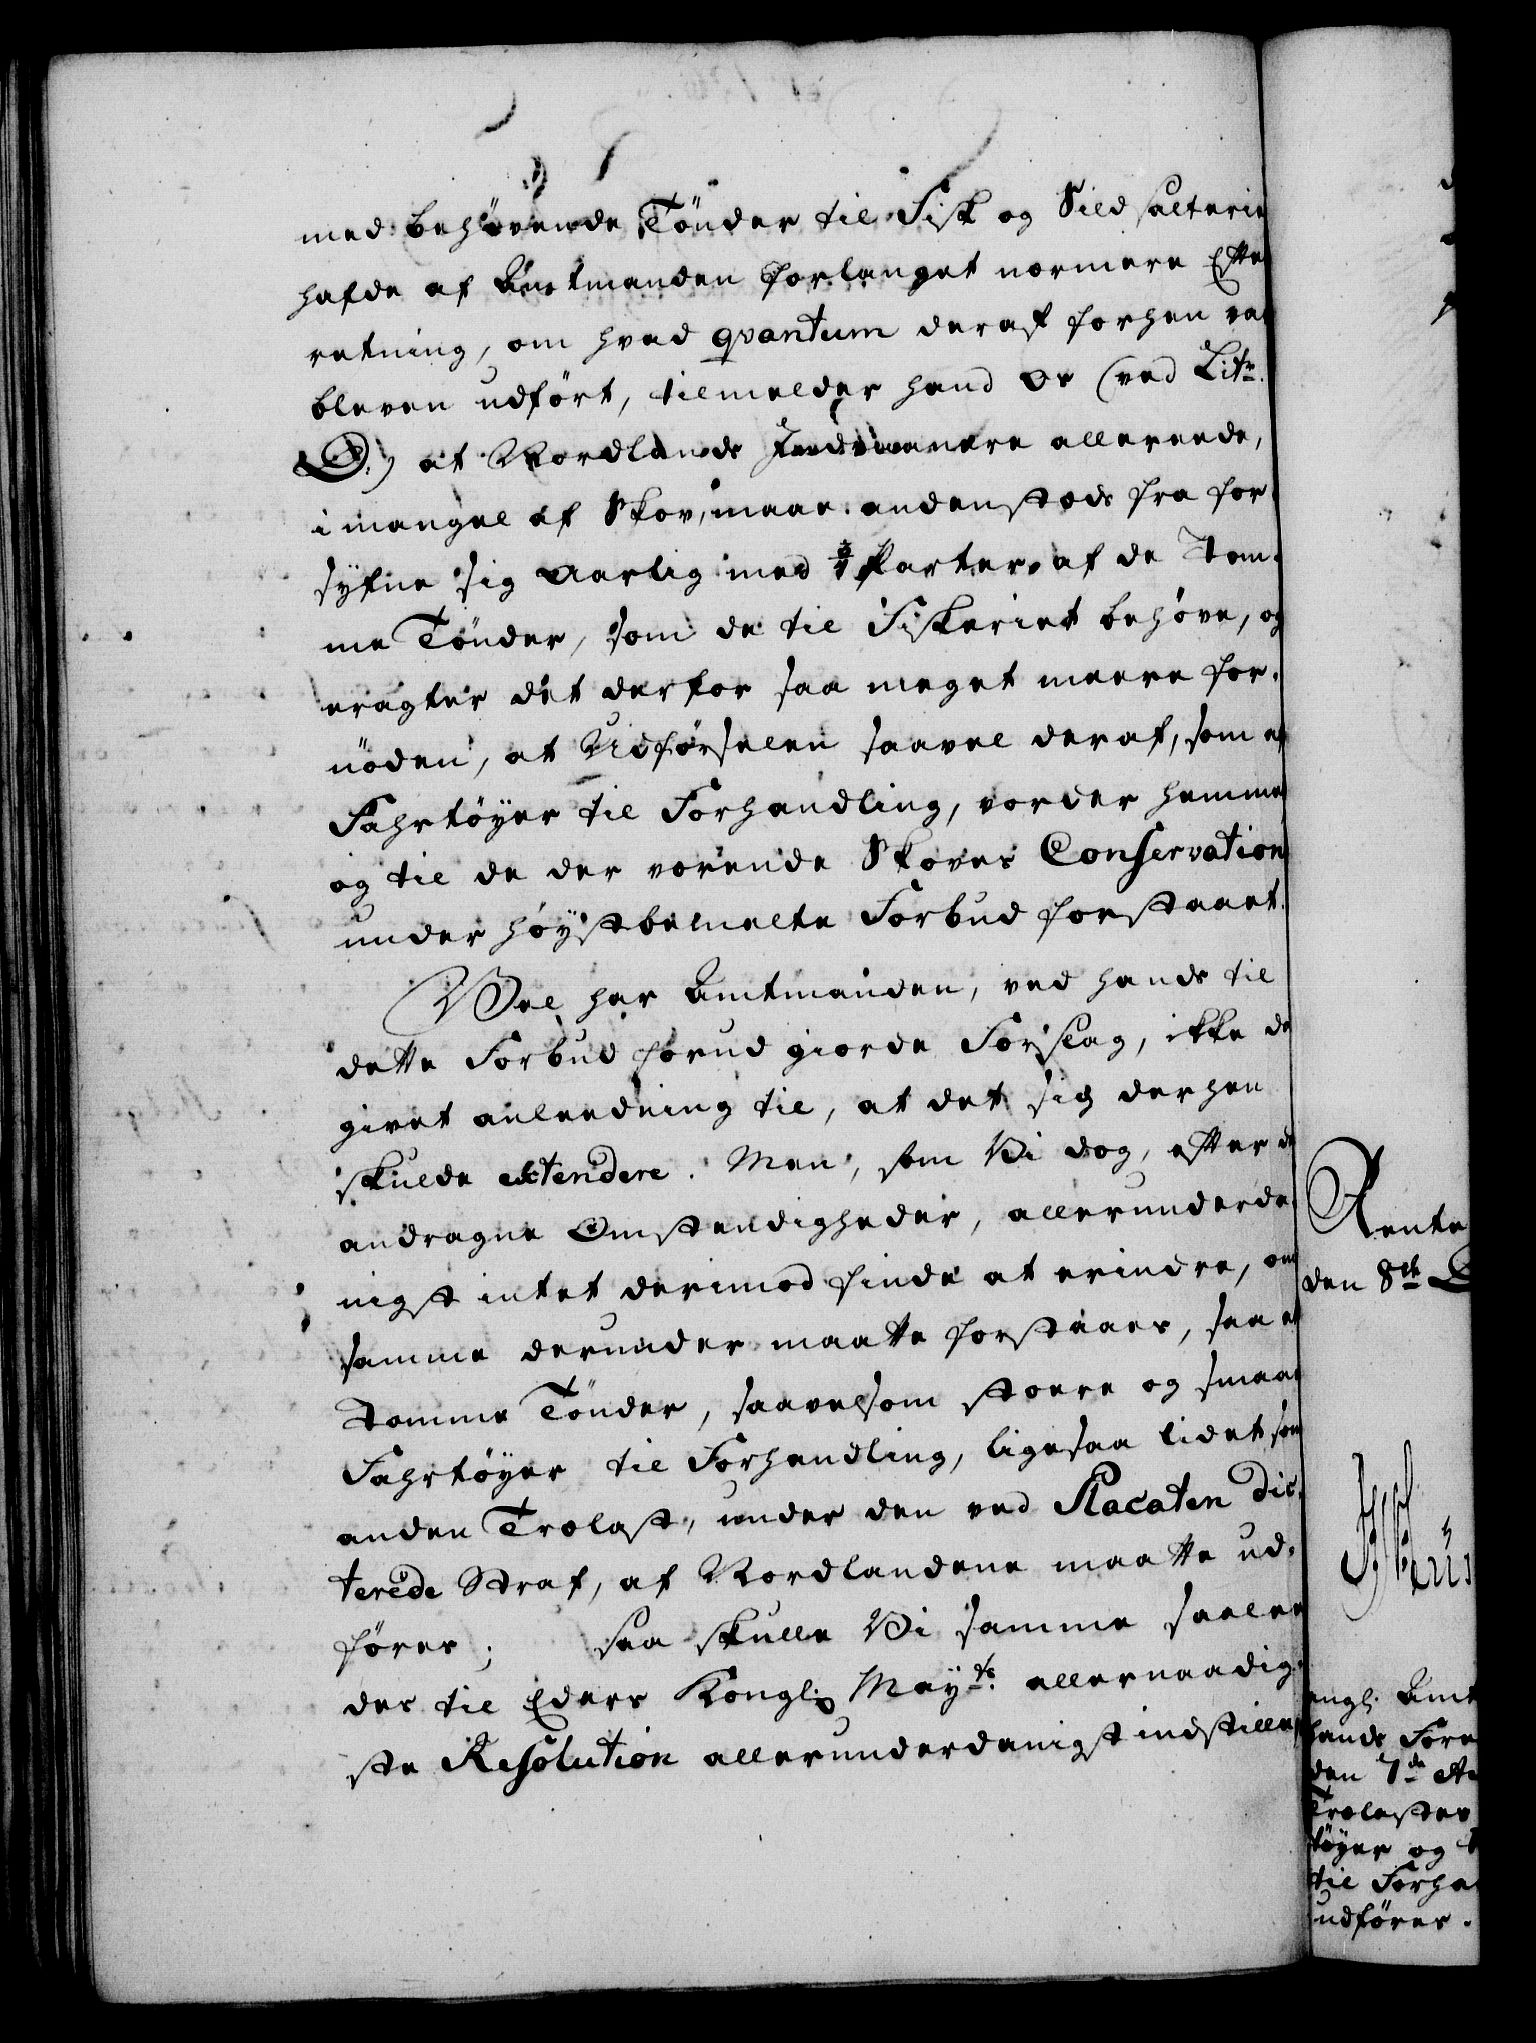 med behøvende Tönder til Fisk og Sild salterie
hafde af Amtmanden forlanget nærmere Efte
retning, om hvad qvantum deraf forhen va
bleven udført, tilmelder hand os (ved Litr.
D.) at Nordlands Indvaanere allereede,
i mangel af Skov, maae andenstæds fra for-
syfne sig aarlig med 3/4 Parter af de Tom-
me Tönder, som de til Fiskeriet behøve, og
eragter det derfor saa meget meere for-
nöden, at Udførselen saavel deraf, som af
Fahrtöyer til Forhandling, vorder hemme
og til de der værende Skoves Conservation
under höystbemelte Forbud forstaaet.
Vel har Amtmanden, ved hands til
dette Forbud forud giorde Forslag, ikke da
givet anleedning til, at det sig derhen
skulde extendere. Men, som Vi dog, efter de
andragne Omstendigheder, allerunderda-
nigst intet derimod finde at erindre, om
samme derunder maatte forstaaes, saa at
Tomme Tönder, saavelsom stoere og smaae
Fahrtöyer til Forhandling, ligesaa lidet som
anden Trælast, under den ved Placaten dic-
terede Straf, af Nordlandene maatte ud-
føres; saa skulle Vi samme saalee
des til Eders Kongl. Mayts. allernaadig-
ste Resolution allerunderdanigst indstille,
Rente
den 8de D
ongl. Amt
lands Fore
den 7de
Trælaster
töyer og T
til Forha
udføres.